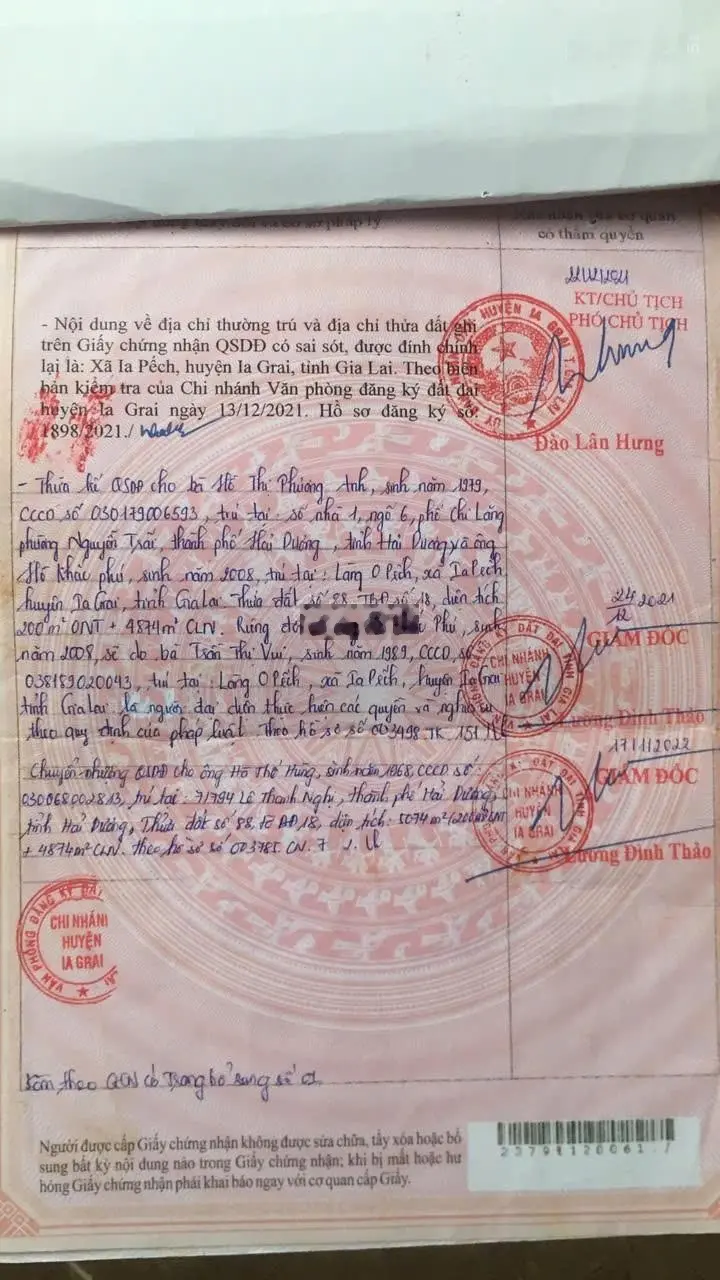 có thẩm quyền
22/12/2021
KT/CHỦ TỊCH
PHÓ CHỦ TỊCH
- Nội dung về địa chỉ thường trú và địa chỉ thửa đất ghi
trên Giấy chứng nhận QSDĐ có sai sót, được đính chính
lại là: Xã Ia Pếch, huyện Ia Grai, tỉnh Gia Lai. Theo biên
bản kiểm tra của Chi nhánh Văn phòng đăng ký đất đai
huyện Ia Grai ngày 13/12/2021. Hồ sơ đăng ký số
1898/2021./
HUYỆN IA GRAI T. GIA LAI
Đào Lân Hưng
- Thừa kế QSDĐ cho bà Hồ Thị Phương Anh, sinh năm 1979,
CCCD số 030179006593, trú tại: số nhà 1, ngõ 6, phố Chi Lăng
phường Nguyễn Trãi, thành phố Hải Dương, tỉnh Hải Dương và ông
Hồ Khắc Phú, sinh năm 2008, trú tại: Làng O Pếch, xã Ia Pếch,
huyện Ia Grai, tỉnh Gia Lai. Thửa đất số 88, TBĐ số 18, diện tích
200m² ONT + 4874m² CLN. Riêng đối Phú, sinh
năm 2008, sẽ do bà Trần Thị Vui, sinh năm 1989, CCCD số
038189020043, trú tại: Làng O Pếch, xã Ia Pếch, huyện Ia Grai
tỉnh Gia Lai là người đại diện thực hiện các quyền và nghĩa vụ
theo quy định của pháp luật. Theo hồ sơ số 003498.TK 151
24/12 2021
GIÁM ĐỐC
CHI NHÁNH
HUYỆN
IA GRAI
Lương Đình Thảo
Chuyển nhượng QSDĐ cho ông Hồ Thế Hùng, sinh năm 1968, CCCD số:
030068002813, trú tại: 71/794 Lê Thanh Nghị, thành phố Hải Dương,
tỉnh Hải Dương, Thửa đất số 88, tờ BĐ 18, diện tích: 5074m² (200m² ONT
+ 4874m² CLN. theo hồ sơ số 003785.CN.
17/11/2022
GIÁM ĐỐC
CHI NHÁNH
HUYỆN
IA GRAI
Lương Đình Thảo
VĂN PHÒNG ĐĂNG KÝ ĐẤT
CHI NHÁNH
HUYỆN
IA GRAI
Kèm theo GCN có Trang bổ sung số 01
Người được cấp Giấy chứng nhận không được sửa chữa, tẩy xóa hoặc bổ
sung bất kỳ nội dung nào trong Giấy chứng nhận; khi bị mất hoặc hư
hỏng Giấy chứng nhận phải khai báo ngay với cơ quan cấp Giấy.